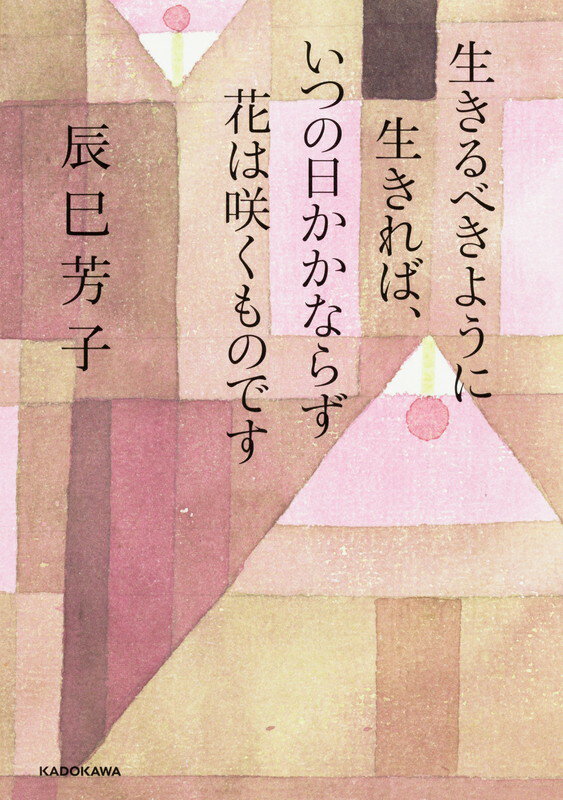 生きるべきように
生きれば、
いつの日かかならず
花は咲くものです
辰巳芳子
KADOKAWA